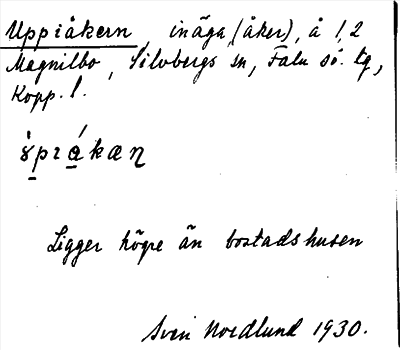 Uppiåkern, inäga (åker), å 1,2
Magnilbo, Silvbergs sn, Falu sö. tg,
Kopp. l.
Ligger högre än bostadshusen
Sven Nordlund 1930.